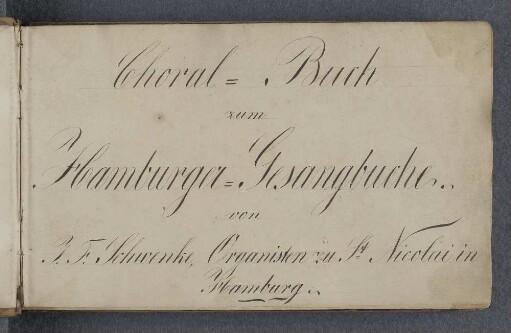 Choral = Buch
zum
Hamburger = Gesangbuche.
von
J. F. Schwenke, Organisten zu St. Nicolai in
Hamburg.